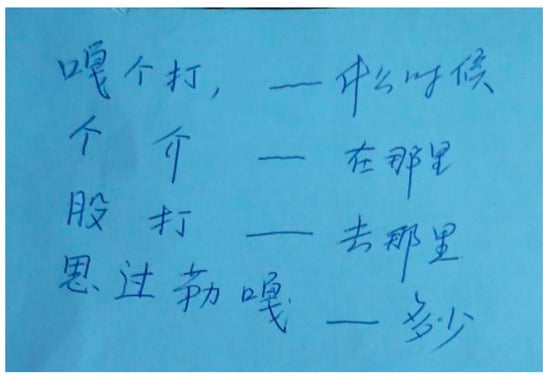 嘎个打，— 什么时候
个介 — 在那里
股打 — 去那里
思过勒嘎 — 多少